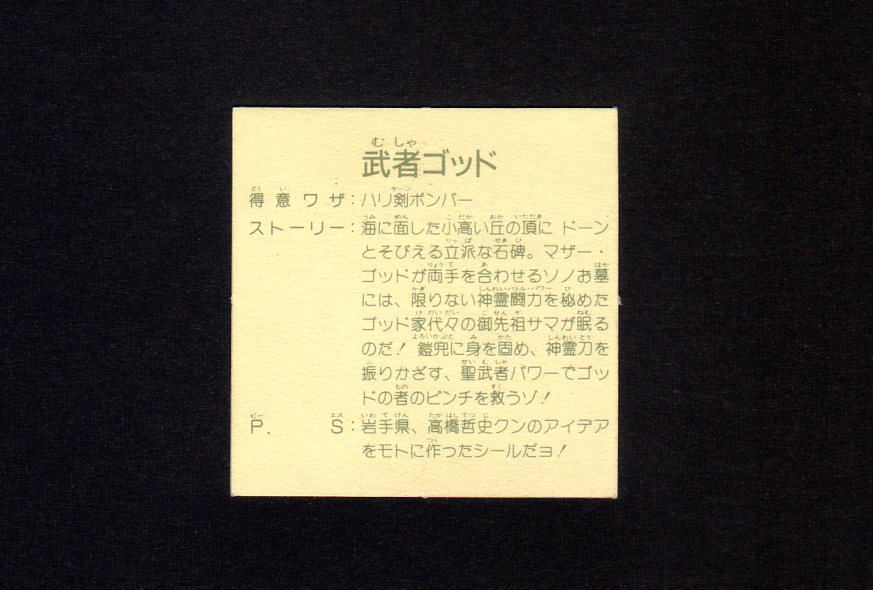 武者ゴッド
得意ワザ：ハリ剣ボンバー
ストーリー：海に面した小高い丘の頂に ドーン
とそびえる立派な石碑。マザー・
ゴッドが両手を合わせるソノお墓
には、限りない神霊闘力を秘めた
ゴッド家代々の御先祖サマが眠る
のだ！鎧兜に身を固め、神霊刀を
振りかざす、聖武者パワーでゴッ
ドの者のピンチを救うゾ！
P. S：岩手県、高橋哲史クンのアイデア
をモトに作ったシールだヨ！